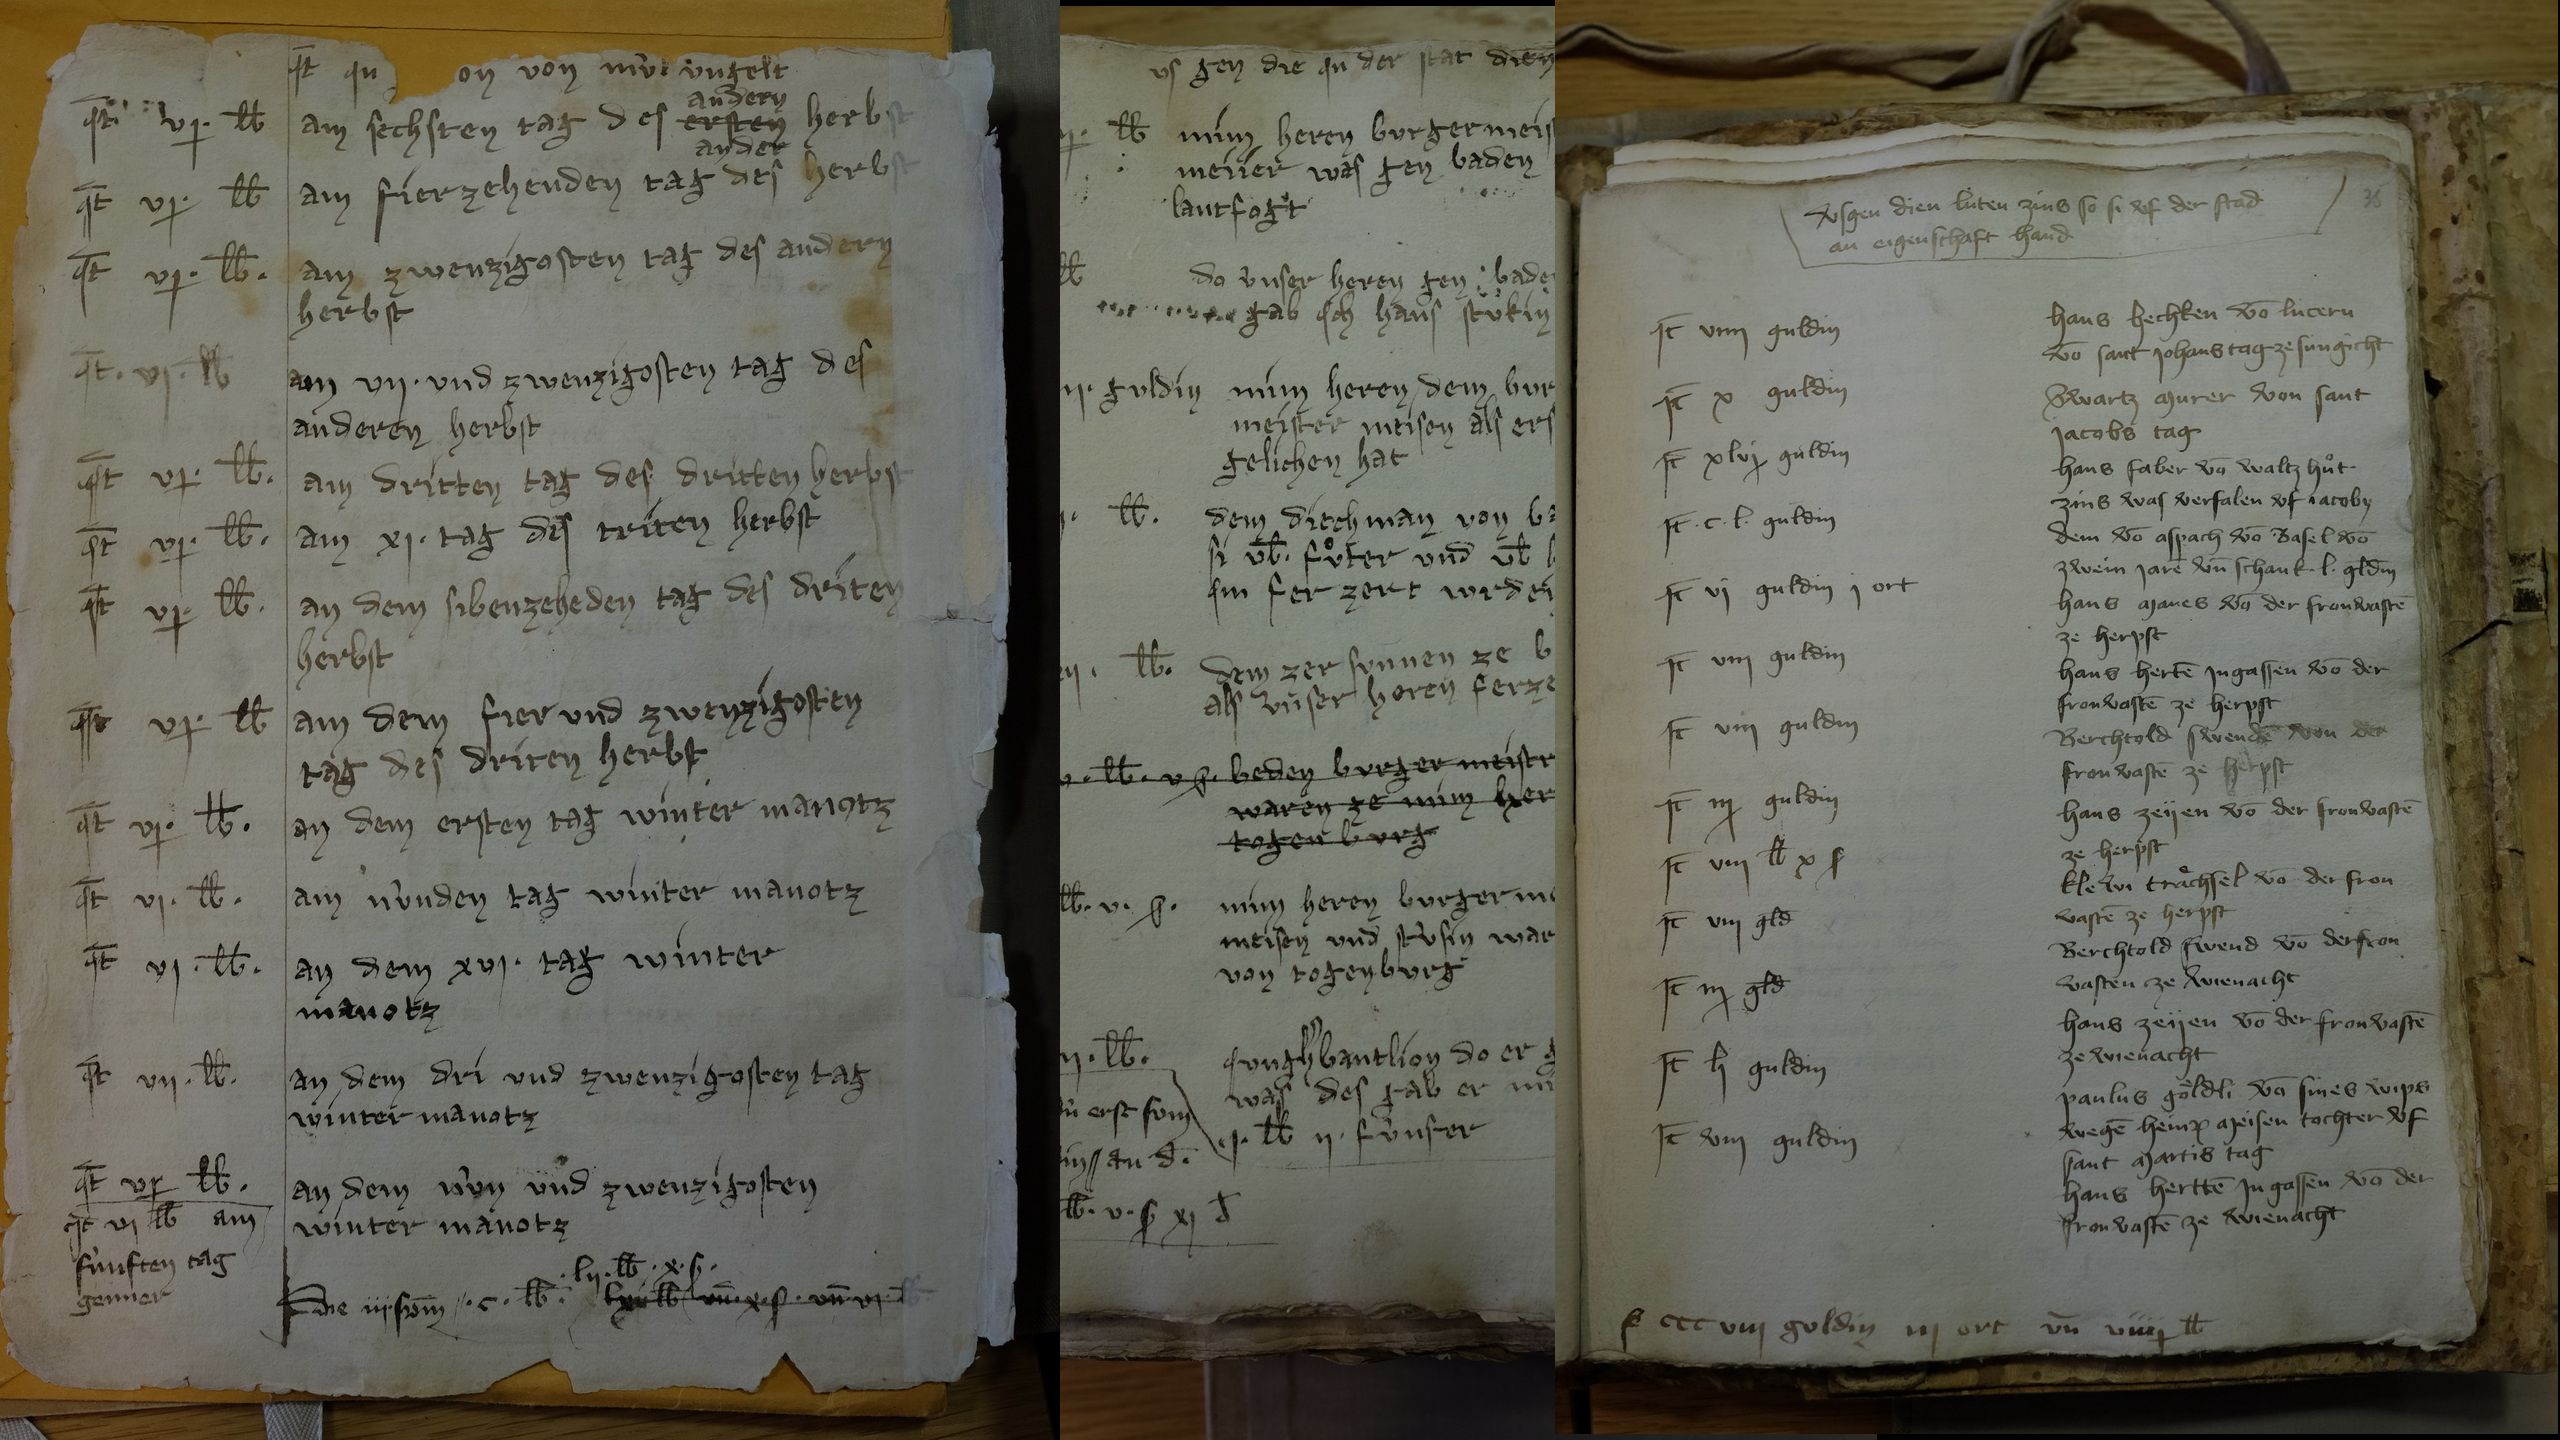 qt qu on von nùi ungelt
andern
qt vj lb am sechsten tag des ersten herbst
ander
qt vj· lb am fierzehenden tag des herbst
qt vj· lb· am zwenzigosten tag des andern
herbst
qt· vj· lb am vij· und zwenzigosten tag des
anderen herbst
qt vj· lb· am dritten tag des dritten herbst
qt vj· lb· am xj· tag des triten herbst
qt vj· lb· an dem sibenzeheden tag des driten
herbst
qt vj· lb am dem fier und zwenzigosten
tag des driten herbst
qt vj· lb· an dem ersten tag winter manotz
qt vj· lb· am nùnden tag winter manotz
qt vj· lb· an dem xvj· tag winter
manotz
qt vij· lb· an dem dri und zwenzigosten tag
winter manotz
qt vj lb· an dem nùn und zwenzigosten
qt vj lb am winter manotz
fùnften tag
genner
·lij· lb· x· s·
die sum ·c· lb·
us gen die qu der stat dien
lb mim heren burgermeis
meiier was gen baden
lantfogt
lb do ùnser heren gen baden
gab ich hans stùkin
ij· guldin mim heren dem bur
meister meisen als ers
gelichen hat
lb· dem diechman von ba
si ūb· fůter und ūb
im fer zert wrden
lb· dem zer sunnen ze b
als ùnser heren ferze
lb· v s· beden burger meistr
waren ze mim her
togenburg
lb· v· s· mim heren burger me
meisen und stùsin war
von togenburg
ij· lb· do er g
was des gab er mi
erst sum j· lb ij· fùnfter
an d·
lb· v· s xj d
Usgen dien lùten zins so si uf der stad
an eigenschaft hand
36
hans hechken vō lucern
qt viiij guldin vō sant johans tag ze sungicht
qt x guldin Swartz murer von sant
jacobs tag
qt xlvj guldin hans faber vō waltzhůt
zins was verfalen uf jacoby
qt· c· l· guldin dem vō aspach vō Basel vō
zwein jare uñ schank· l· gldin
qt vj guldin j ort hans manes vō der fronvastē
ze herpst
qt viij guldin hans hertē jn gassen vō der
fronvastē ze herpst
qt viij guldin Berchtold swendē von der
fronvastē ze herpst
qt iij guldin hans zeijen vō der fronvastē
ze herpst
qt viij lb x s klewi trächsel vō der fron
qt viij gld vastē ze herpst
Berchtold swend vō der fron
qt iij gld vasten ze wienacht
hans zeijen vō der fronvastē
qt lj guldin ze wienacht
paulus göldli vō sines wips
qt viij guldin wegē heinr meisen tochter uf
sant martis tag
hans herttē jn gassen vō der
fronvastē ze wienacht
s ccc viij guldin iij ort uñ viiij lb